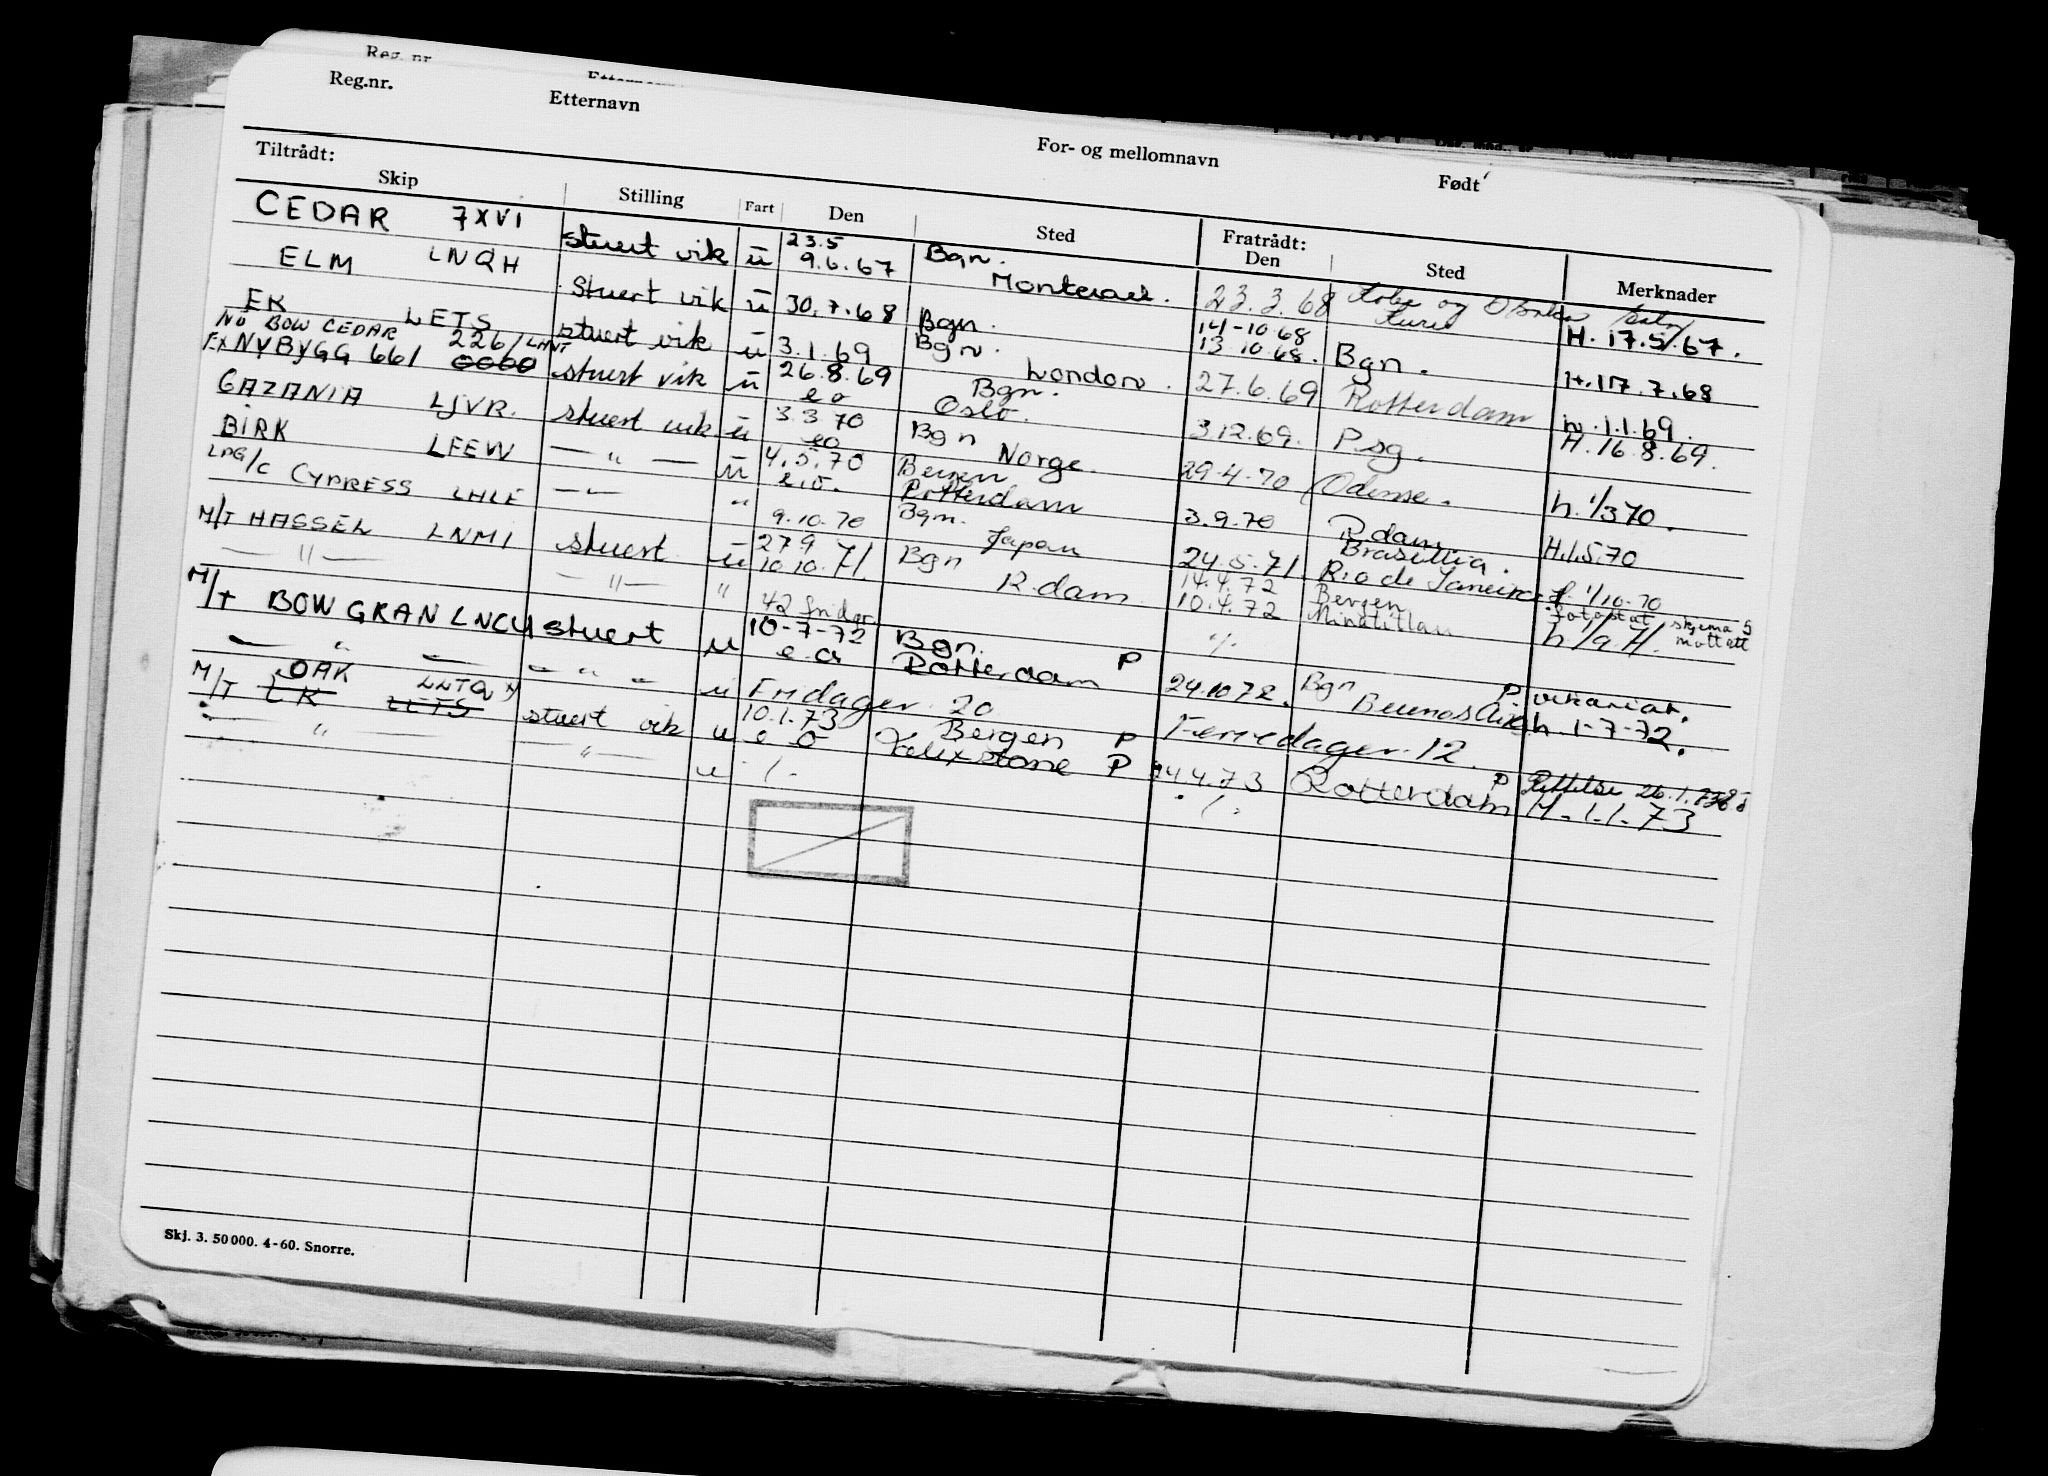 Reg. nr.
Reg.nr. Etternavn For- og mellomnavn Født
Tiltrådt: Fratrådt:
Skip Stilling Fart Den Sted Den Sted Merknader
CEDAR 7XVI stuert vik u 23.5 9.6.67 Bgn. Montreal. 23.3.68 Kobe og Osaka H. 17.5.67.
ELM LNQH Stuert vik u 30.7.68 Bgn. 14-10-68 13.10.68. Bgn. H. 17.7.68
EK LETS stuert vik u 3.1.69 Bgn. London. 27.6.69 Rotterdam h. 1.1.69.
NÖ BOW CEDAR 226/LMNT
EX NYBYGG 661 stuert vik u 26.8.69 e o Bgn. Oslo. 3.12.69. Psg. H. 16.8.69.
GAZANIA LJVR. stuert vik u 3.3.70 eo Bgn Norge. 29-4-70 Odense. h. 1/3 70.
BIRK LFEW — " — u 4.5.70 e.o. Bergen Rotterdam 3.9.70 R.dam H.1.5.70
LPG/C CYPRESS LHLE — " — " 9.10.70 Bgn. Japan 24.5.71. Brasillia. Rio de Janeiro 1/10.70
M/T HASSEL LNMI stuert u 27.9 10.10.71. Bgn R.dam 14.4.72 10.4.72 Bergen Minatitlan fotostat skjema 5 mottatt h. 1/9.71.
— " — — " — " 42 fridgr. %
M/T BOW GRAN LNCU stuert u 10-7-72 e.o Bgn. Rotterdam P 24.10.72. Bgn Buenos Aires P. vikariat. h. 1-7-72.
— " — — " — u Fridager. 20 Feriedager. 12.
M/T OAK LLTQ
EK LETS stuert vik u 10.1.73 e o Bergen P Felixstowe P 4.4.73 Rotterdam P Rettelse 26.1.73 H. 1.1.73
— " — — " — u %. %.
Skj. 3. 50 000. 4-60. Snorre.